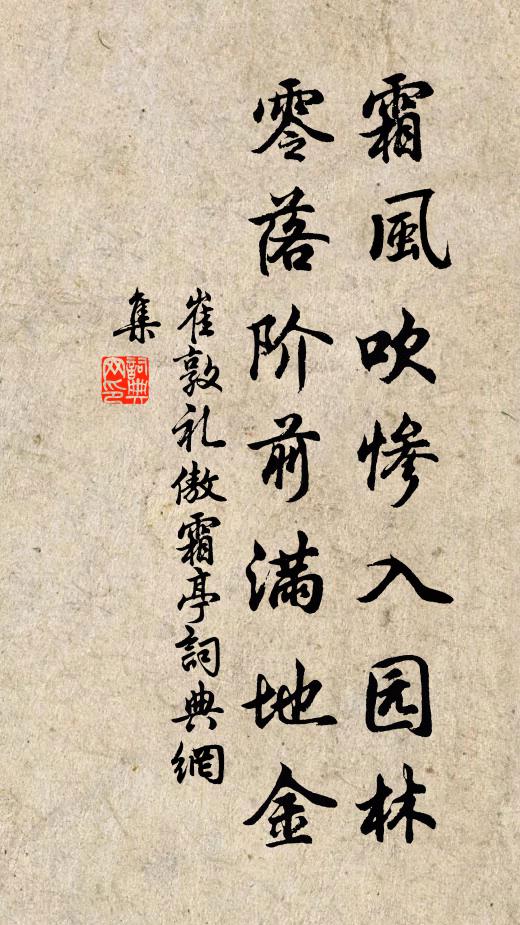 霜風吹惨入园林
零落阶前满地金
崔敦礼傲霜亭詞典網
集
詞典
网印